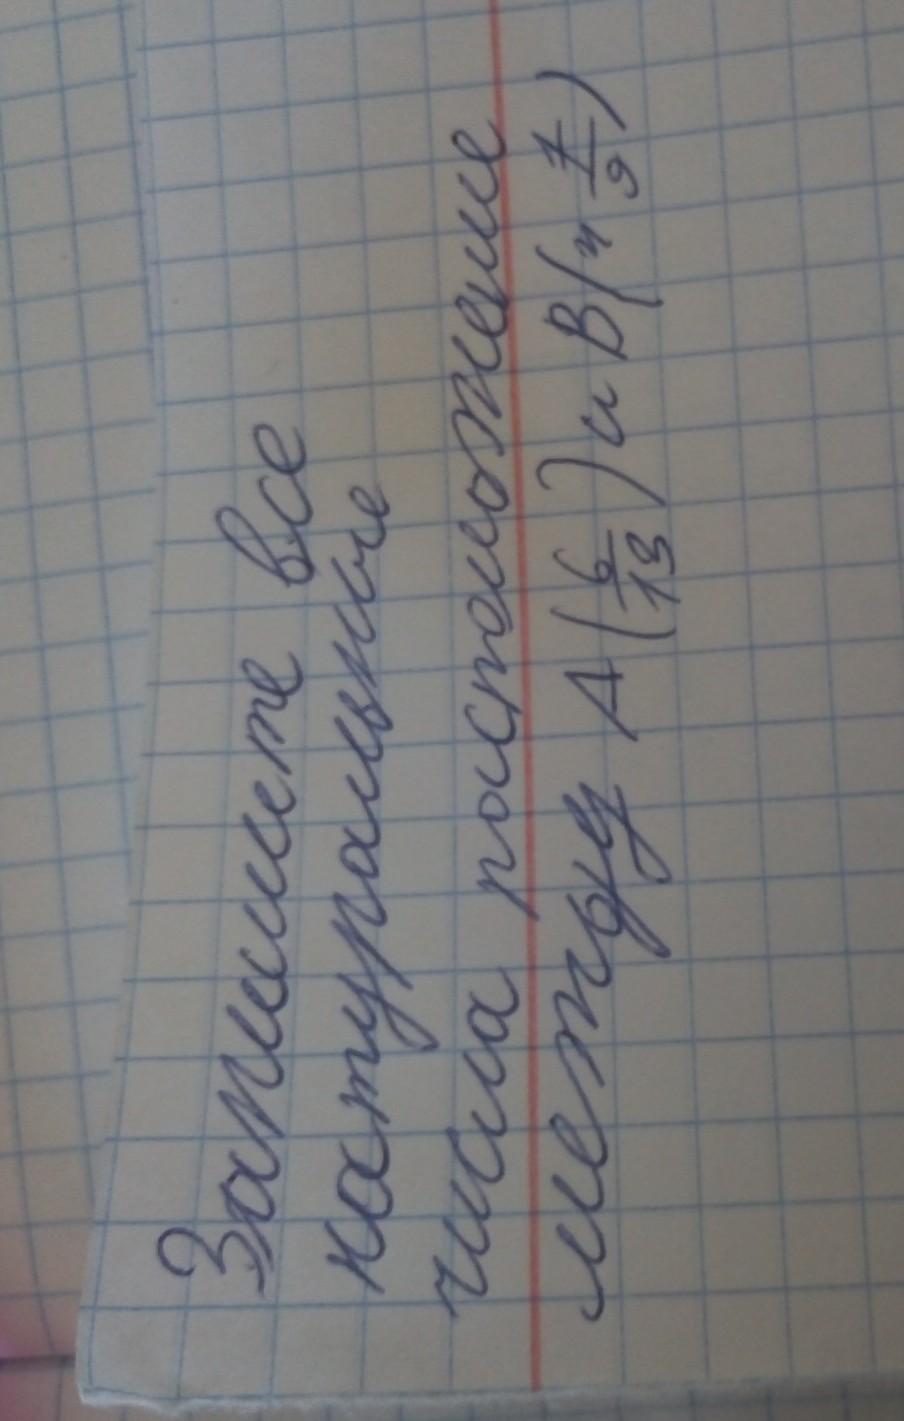 Запишите все
натуральные
числа росположеные
между А(6/13) и В(4 1/9)